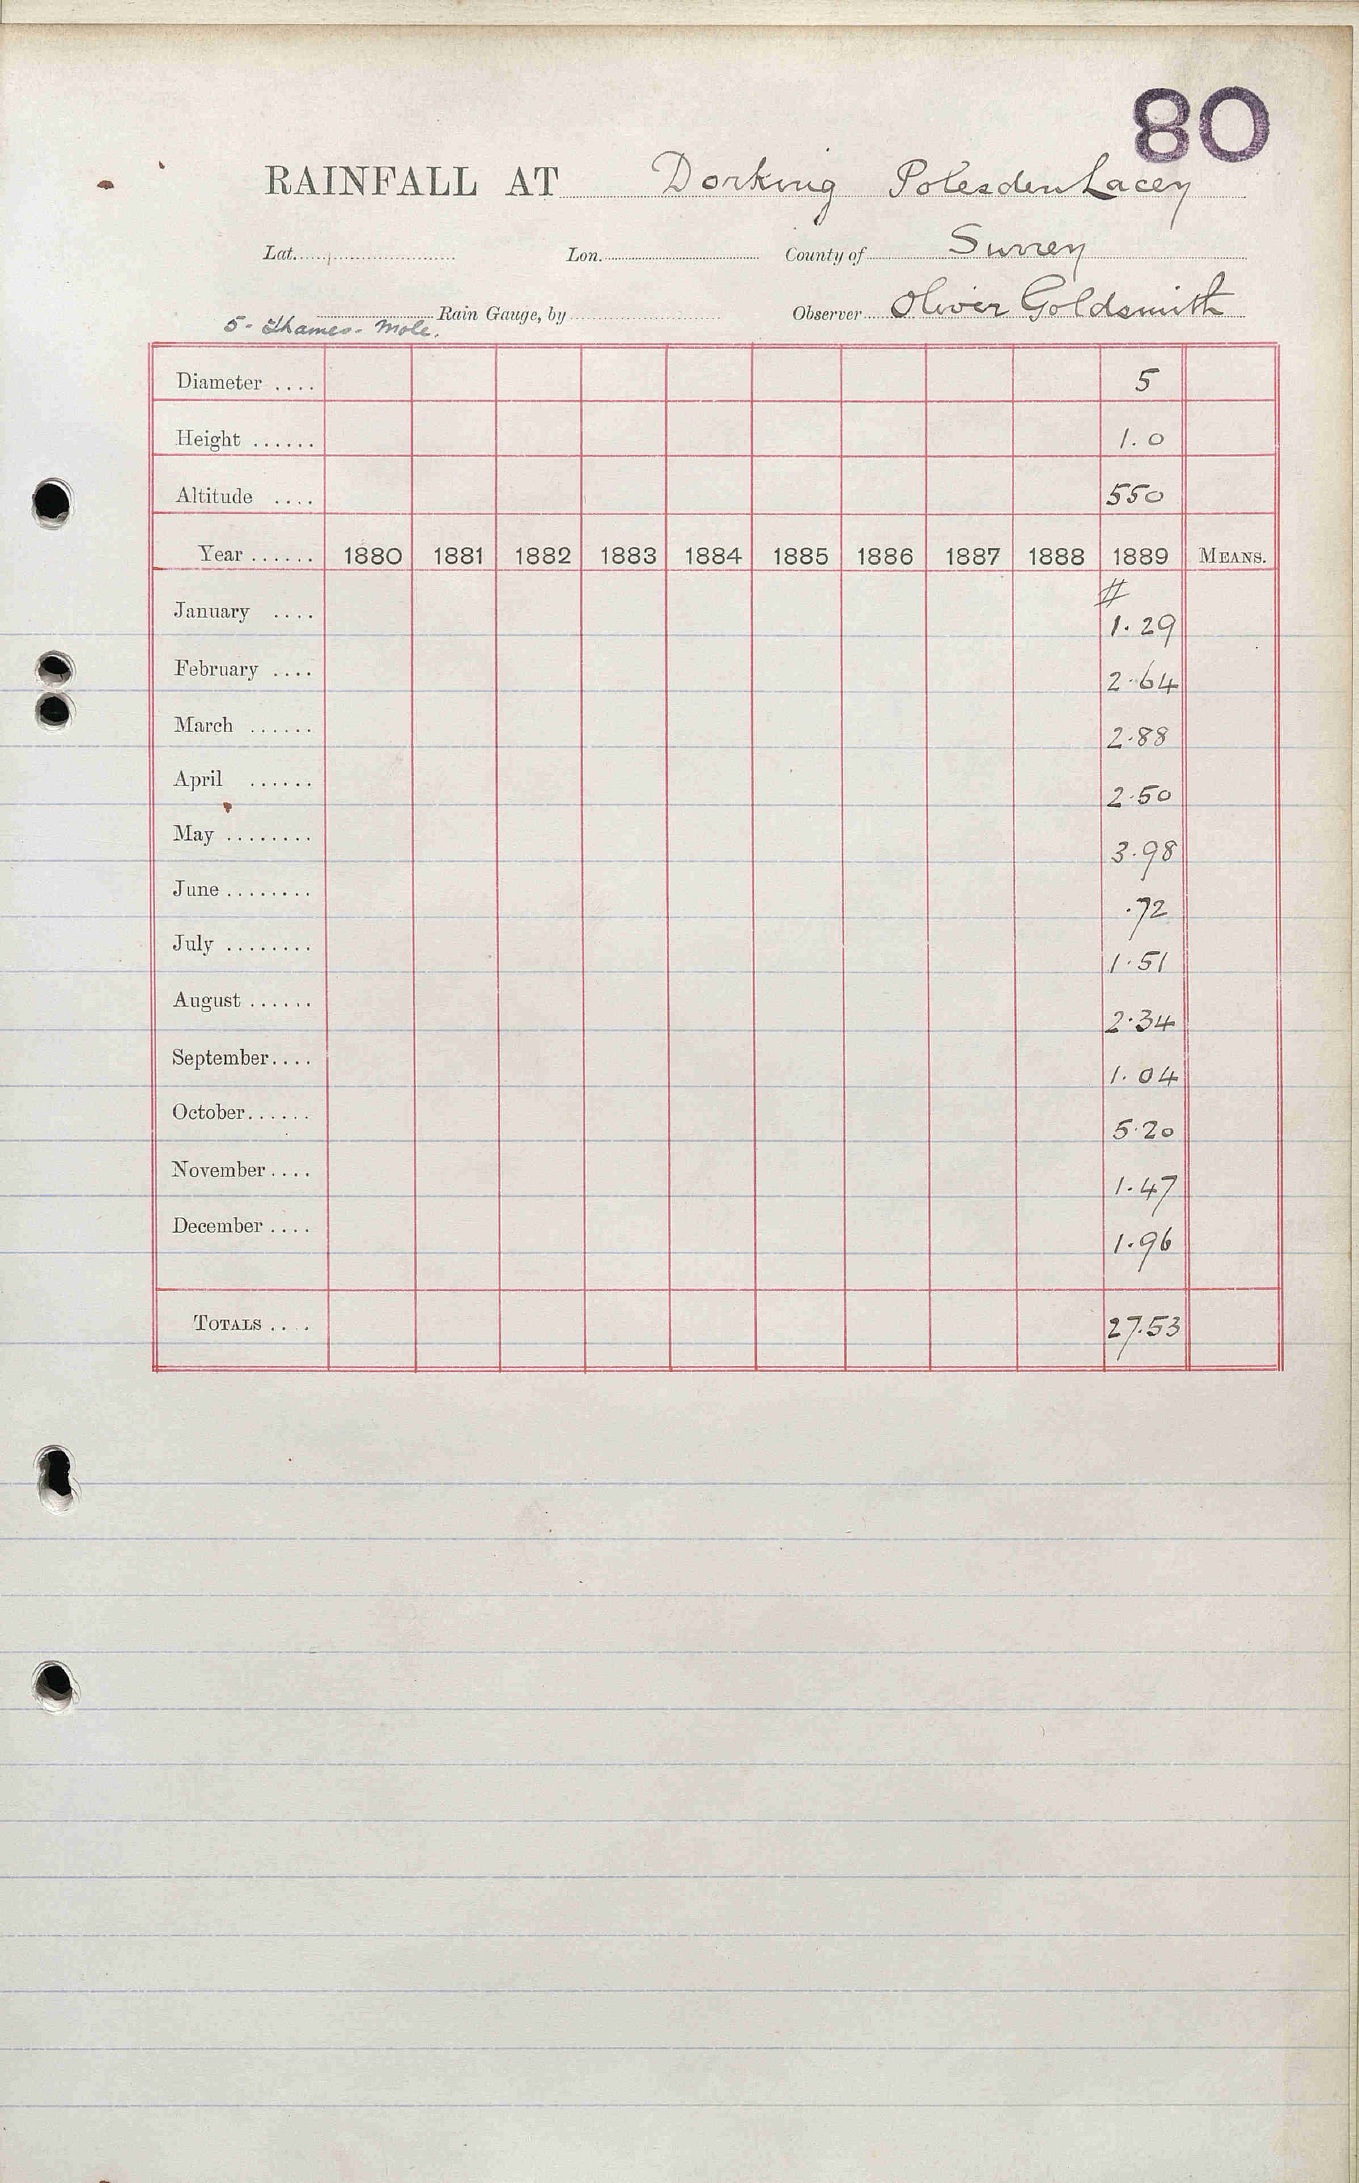 80
RAINFALL AT Dorking Polesden Lacey
Lat. Lon. County of Surrey
Rain Gauge, by Observer Oliver Goldsmith
5 - Thames - Mole.
Diameter .... 5
Height ...... 1.0
Altitude .... 550
Year ...... 1880 1881 1882 1883 1884 1885 1886 1887 1888 1889 MEANS.
#
January .... 1.29
February .... 2.64
March ...... 2.88
April ...... 2.50
May ........ 3.98
June ........ .72
July ........ 1.51
August ...... 2.34
September.... 1.04
October...... 5.20
November.... 1.47
December .... 1.96
TOTALS .... 27.53